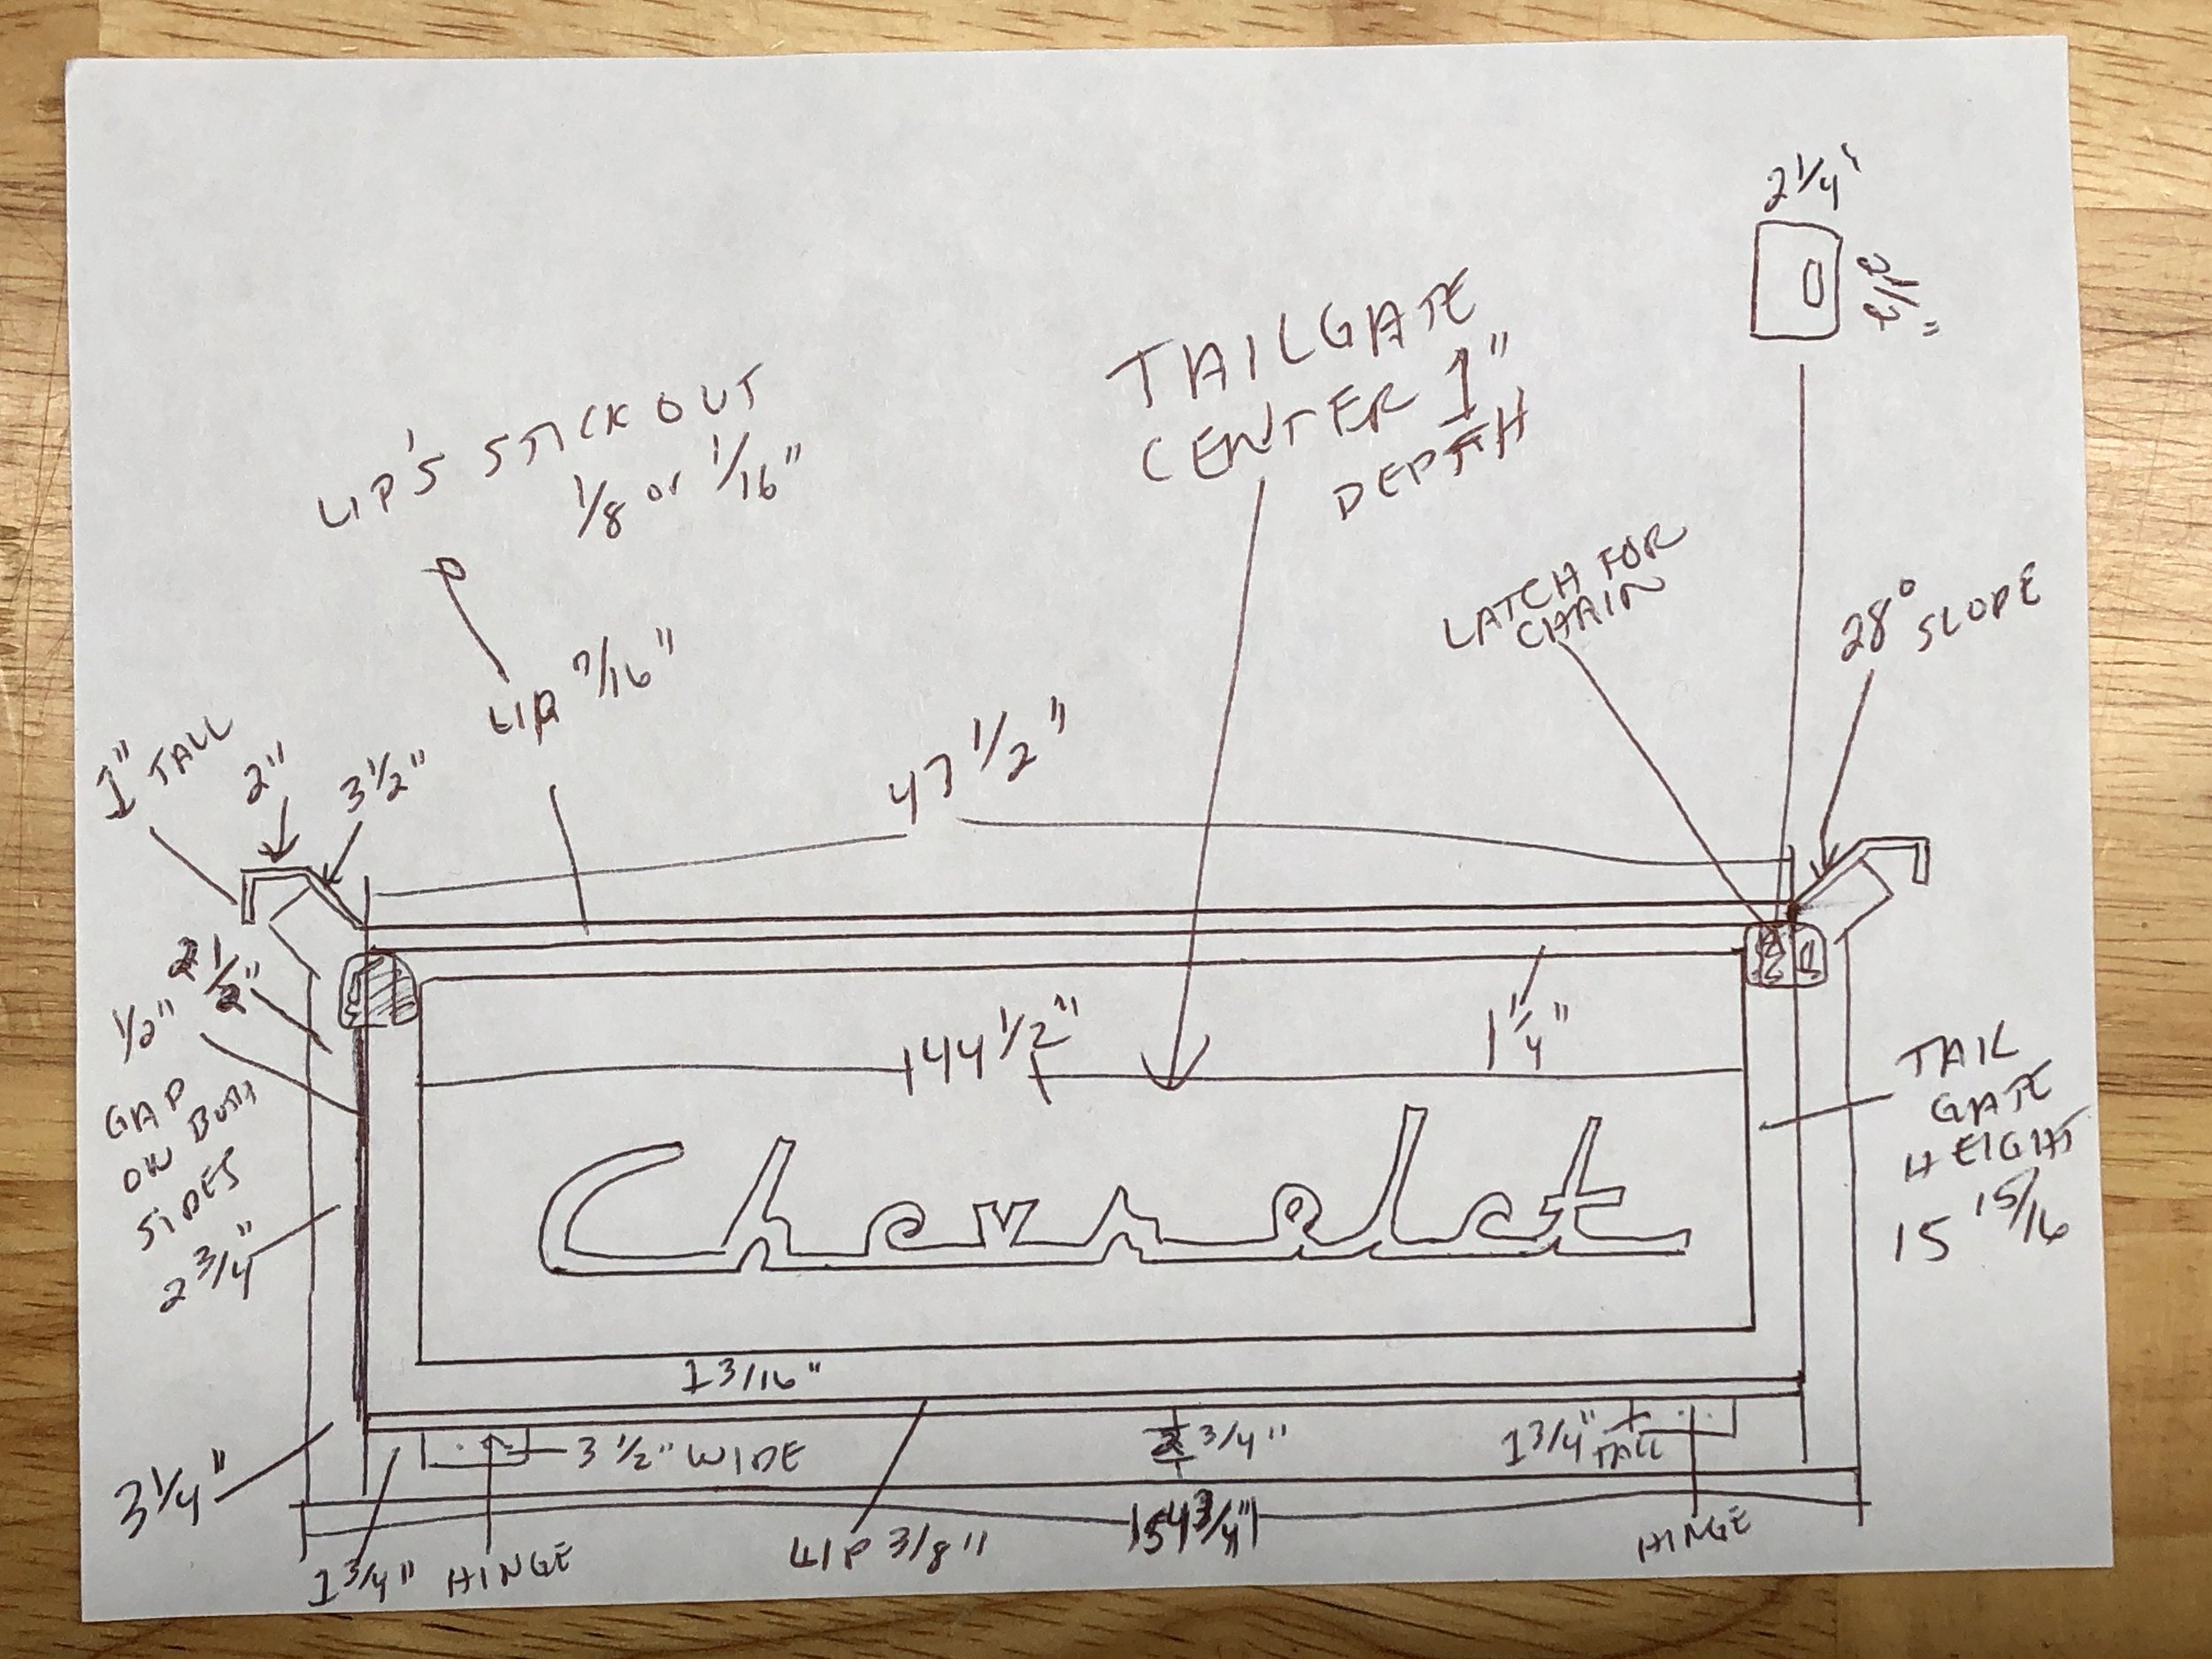 2 1/4"
TAILGATE
CENTER 1"
DEPTH
LIP'S STICK OUT
1/8 or 1/16"
LATCH FOR
CHAIN
28° SLOPE
LIP 7/16"
47 1/2"
1" TALL
2"
3 1/2"
2 1/2"
1/2"
GAP
ON BOTH
SIDES
2 3/4"
3 1/4"
44 1/2"
1 1/4"
TAIL
GATE
HEIGHT
15 15/16
Chevrolet
1 3/16"
3 1/2" WIDE
3/4"
1 3/4"
TALL
1 3/4"
HINGE
LIP 3/8"
54 3/4"
HINGE